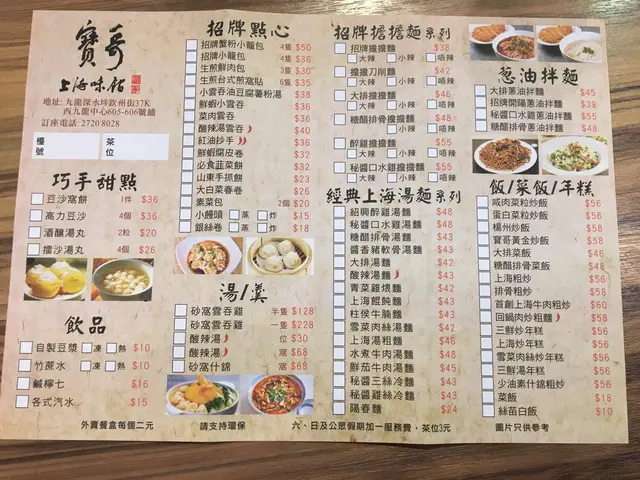 寶哥
上海味館
地址: 九龍深水埗欽州街37K
西九龍中心605-606號舖
訂座電話: 2720 8028
檯號
茶位
巧手甜點
豆沙窩餅 1件 $36
高力豆沙 4個 $36
酒釀湯丸 2粒 $20
擂沙湯丸 4個 $26
飲品
自製豆漿 凍 熱 $10
竹蔗水 凍 熱 $10
鹹檸七 $16
各式汽水 $15
外賣餐盒每個二元
招牌點心
招牌蟹粉小籠包 4隻 $50
招牌小籠包 4隻 $36
生煎鮮肉包 3隻 $30
生煎台式煎窩貼 6隻 $35
小雲吞油豆腐薯粉湯 $38
鮮蝦小雲吞 $36
菜肉雲吞 $36
酸辣湯雲吞 $40
紅油抄手 $36
鮮蝦腐皮卷 $32
必食韮菜餅 $32
山東手抓餅 $23
大白菜春卷 $26
素菜包 2個 $20
小饅頭 蒸 炸 $15
銀絲卷 蒸 炸 $18
湯/羹
砂窩雲吞雞 半隻 $128
砂窩雲吞雞 一隻 $228
酸辣湯 位 $30
酸辣湯 窩 $68
砂窩什錦 窩 $68
請支持環保
招牌擔擔麵系列
招牌擔擔麵 $38
大辣 小辣 唔辣
擔擔刀削麵 $42
大辣 小辣 唔辣
大排擔擔麵 $46
大辣 小辣 唔辣
糖醋排骨擔擔麵 $48
大辣 小辣 唔辣
醉雞擔擔麵 $55
大辣 小辣 唔辣
秘醬口水雞擔擔麵 $55
大辣 小辣 唔辣
經典上海湯麵系列
紹興醉雞湯麵 $48
秘醬口水雞湯麵 $48
糖醋排骨湯麵 $43
醬香豬軟骨湯麵 $43
大排湯麵 $42
酸辣湯麵 $43
青菜雞煨麵 $42
上海餛飩麵 $43
柱侯牛腩麵 $43
雪菜肉絲湯麵 $42
上海湯粗麵 $46
水煮牛肉湯麵 $48
鮮茄牛肉湯麵 $45
秘醬三絲冷麵 $43
秘醬雞絲冷麵 $43
陽春麵 $24
六、日及公眾假期加一服務費, 茶位3元
蔥油拌麵
大排蔥油拌麵 $45
招牌開陽蔥油拌麵 $39
秘醬口水雞蔥油拌麵 $55
糖醋排骨蔥油拌麵 $48
飯/菜飯/年糕
咸肉菜粒炒飯 $56
蛋白菜粒炒飯 $56
楊州炒飯 $58
寶哥黃金炒飯 $58
大排菜飯 $46
糖醋排骨菜飯 $48
上海粗炒 $56
排骨粗炒 $58
首創上海牛肉粗炒 $60
回鍋肉炒粗麵 $58
三鮮炒年糕 $56
上海炒年糕 $56
雪菜肉絲炒年糕 $56
三鮮湯年糕 $56
少油素什錦粗炒 $56
菜飯 $18
絲苗白飯 $10
圖片只供參考